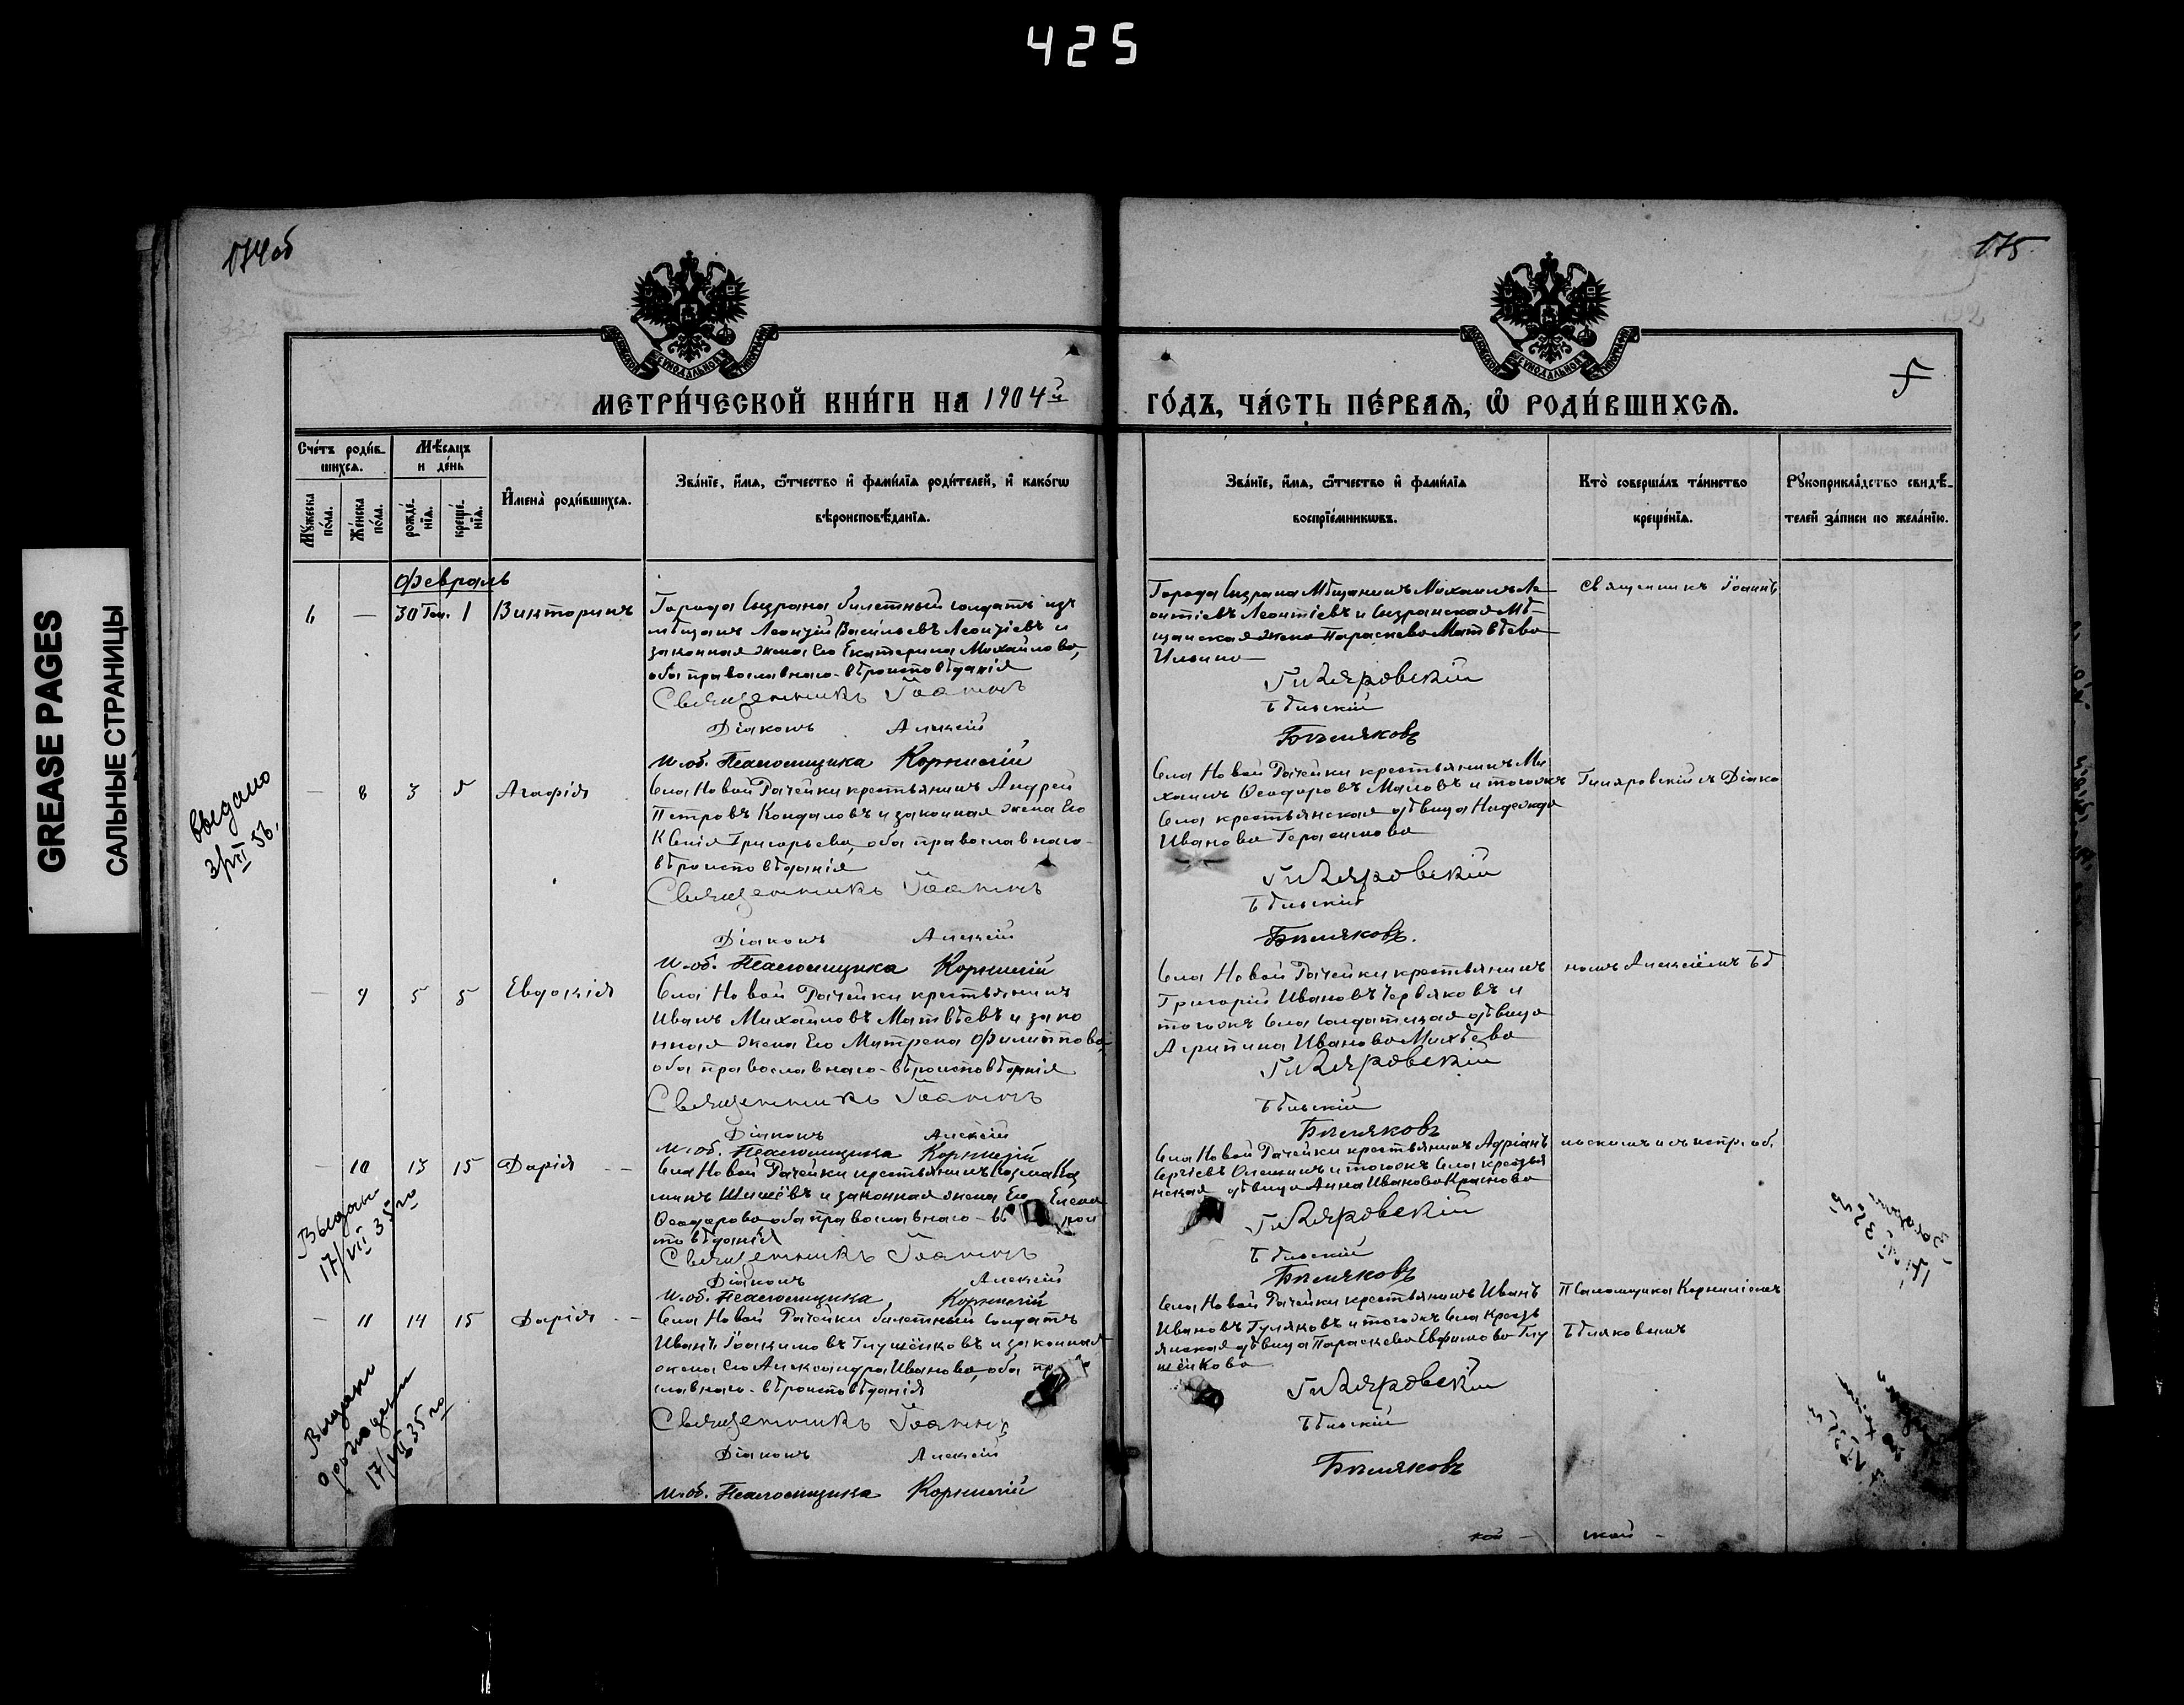 425
GREASE PAGES
САЛЬНЫЕ СТРАНИЦЫ
174об
175
5
МЕТРИ́ЧЕСКОЙ КНИ́ГИ НА 1904й
ГО́ДЪ, ЧА́СТЬ ПЕ́РВАЯ, Ѡ РОДИ́ВШИХСЯ.
Сче́тъ роди́в-
шихся.
Мѣ́сяцъ
и де́нь
Мꙋжеска
по́ла.
Же́нска
по́ла.
рожде́-
нїя.
креще́-
нїя.
И҆мена̀ роди́вшихся.
Зва́нїе, и҆́мя, ѻ҆́тчество и҆ фами́лїя роди́телей, и҆ како́гѡ
вѣроисповѣ́данїя.
Зва́нїе, и҆́мя, ѻ҆́тчество и҆ фами́лїя
воспрїе́мникѡвъ.
Кто̀ соверша́лъ та́инство
креще́нїя.
Рꙋкоприкла́дство свидѣ́-
телей за́писи по жела́нїю.
Февраль
6 — 30 Ген. 1 Викторинъ
Города Сызрана билетный солдатъ изъ
мѣщанъ Леонтій Васильевъ Леонтіевъ и
законная жена Его Екатерина Михайлова,
оба православнаго-вѣроисповѣданія
Священникъ Іоаннъ
Діаконъ Алексій
И.об. Псаломщика Корнилій
Города Сызрана Мѣщанинъ Михаилъ Ле-
онтіевъ Леонтіевъ и Сызранская Мѣ-
щанская жена Параскева Матвѣева
Ильина
Гиляровскій
Бѣльскій
Бѣляковъ
Священникъ Іоаннъ
— 8 3 5 Агафія
Села Новой Рачейки крестьянинъ Андрей
Петровъ Кондаловъ и законная жена Его
Ксенія Григорьева, оба православнаго-
вѣроисповѣданія
Священникъ Іоаннъ
Діаконъ Алексій
И.об. Псаломщика Корнилій
Села Новой Рачейки крестьянинъ Ми-
хаилъ Ѳеодоровъ Маловъ и тогожъ
Села крестьянская дѣвица Надежда
Иванова Герасимова
Гиляровскій
Бѣльскій
Бѣляковъ.
Гиляровскій съ Діако
выдано
3/VII 56.
— 9 5 5 Евдокія
Села Новой Рачейки крестьянинъ
Иванъ Михайловъ Матвѣевъ и зако
нная жена Его Матрена Филиппова,
оба православнаго-вѣроисповѣданія
Священникъ Іоаннъ
Діаконъ Алексій
И.об. Псаломщика Корнилій
Села Новой Рачейки крестьянинъ
Григорій Ивановъ Червяковъ и
тогожъ Села солдатская дѣвица
Агрипина Иванова Михѣева
Гиляровскій
Бѣльскій
Бѣляковъ
номъ Алексіемъ Бѣ
— 10 13 15 Дарія
Села Новой Рачейки крестьянинъ Козма Коз
минъ Шишёвъ и законная жена Его Елена
Ѳеодорова оба православнаго-вѣроис
повѣданія
Священникъ Іоаннъ
Діаконъ Алексій
И.об. Псаломщика Корнилій
Села Новой Рачейки крестьянинъ Адріанъ
Сергѣевъ и тогожъ Села крестья
нская дѣвица Анна Иванова Краснова
Гиляровскій
Бѣльскій
Бѣляковъ
льскимъ и съ испр. об.
Выдано
17/VII 35 го
— 11 14 15 Дарія
Села Новой Рачейки билетный солдатъ
Иванъ Іоакимовъ Глушёнковъ и законная
жена Его Александра Иванова, оба пр
славнаго-вѣроисповѣданія
Священникъ Іоаннъ
Діаконъ Алексій
И.об. Псаломщика Корнилій
Села Новой Рачейки крестьянинъ Иванъ
Ивановъ Гуляковъ и тогожъ Села кресть
янская дѣвица Параскева Евфимова Глу
шёнкова
Гиляровскій
Бѣльскій
Бѣляковъ
Псаломщика Корниліемъ
Бѣляковымъ
Выдано
о рождении
17/VII 35 го